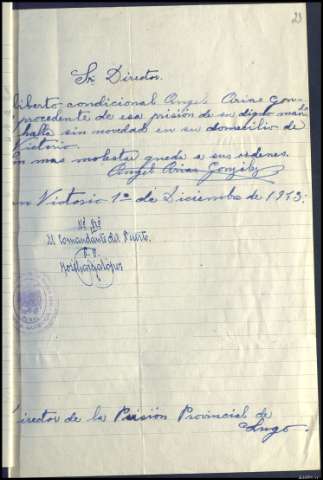 23
Sr. Director.
liberto condicional Angel Arias Gon-
procedente de esa prisión de su digno man
halla sin novedad en su domicilio de
Victorio.
in mas molestar quede a sus ordenes.
Angel Arias González
en Victorio 1º de Diciembre de 1943.
El Comandante del Puerto.
Director de la Prisión Provincial de
Lugo.